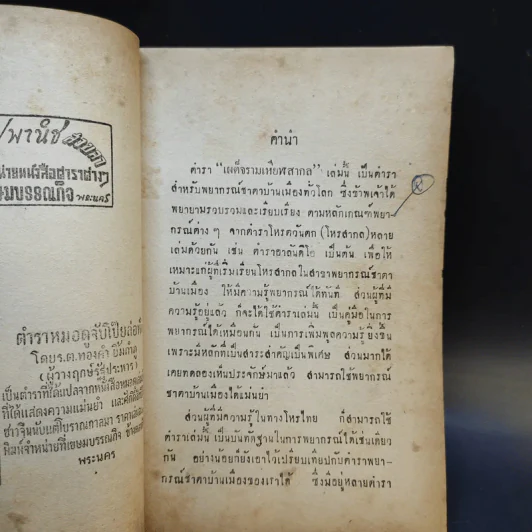 พานิช
สาขา
ตำราหมอดูจับโป๊ยล่อ
โดย ร.ต.ทองคำ ยิ้มกำภู
(ผู้วางฤกษ์รัฐประหาร)
เป็นตำราที่ได้แปลจากหนังสือ
พระนคร
คำนำ
ตำรา "เผด็จรามเหียฬสากล" เล่มนี้ เป็นตำรา
สำหรับพยากรณ์ชาตาบ้านเมืองทั่วโลก ซึ่งข้าพเจ้าได้
พยายามรวบรวมและเรียบเรียง ตามหลักเกณฑ์พยา-
กรณ์ต่าง ๆ จากตำราโหรตวันตก (โหรสากล) หลาย
เล่มด้วยกัน เช่น ตำราอาลันดีโอ เป็นต้น เพื่อให้
เหมาะแก่ผู้ที่เริ่มเรียนโหรสากลในสาขาพยากรณ์ชาตา
บ้านเมือง ให้มีความรู้พยากรณ์ได้ทันที ส่วนผู้ที่มี
ความรู้อยู่แล้ว ก็จะได้ใช้ตำราเล่มนี้ เป็นคู่มือในการ
พยากรณ์ได้เหมือนกัน เป็นการเพิ่มพูลความรู้ยิ่งขึ้น
เพราะมีหลักที่เป็นสาระสำคัญเป็นพิเศษ ส่วนมากได้
เคยทดลองเห็นประจักษ์มาแล้ว สามารถใช้พยากรณ์
ชาตาบ้านเมืองได้แม่นยำ
ส่วนผู้ที่มีความรู้ในทางโหรไทย ก็สามารถใช้
ตำราเล่มนี้ เป็นบันทัดฐานในการพยากรณ์ได้เช่นเดียว
กัน อย่างน้อยก็ยังเอาไว้เปรียบเทียบกับตำราพยา-
กรณ์ชาตาบ้านเมืองของเราได้ ซึ่งมีอยู่หลายตำรา